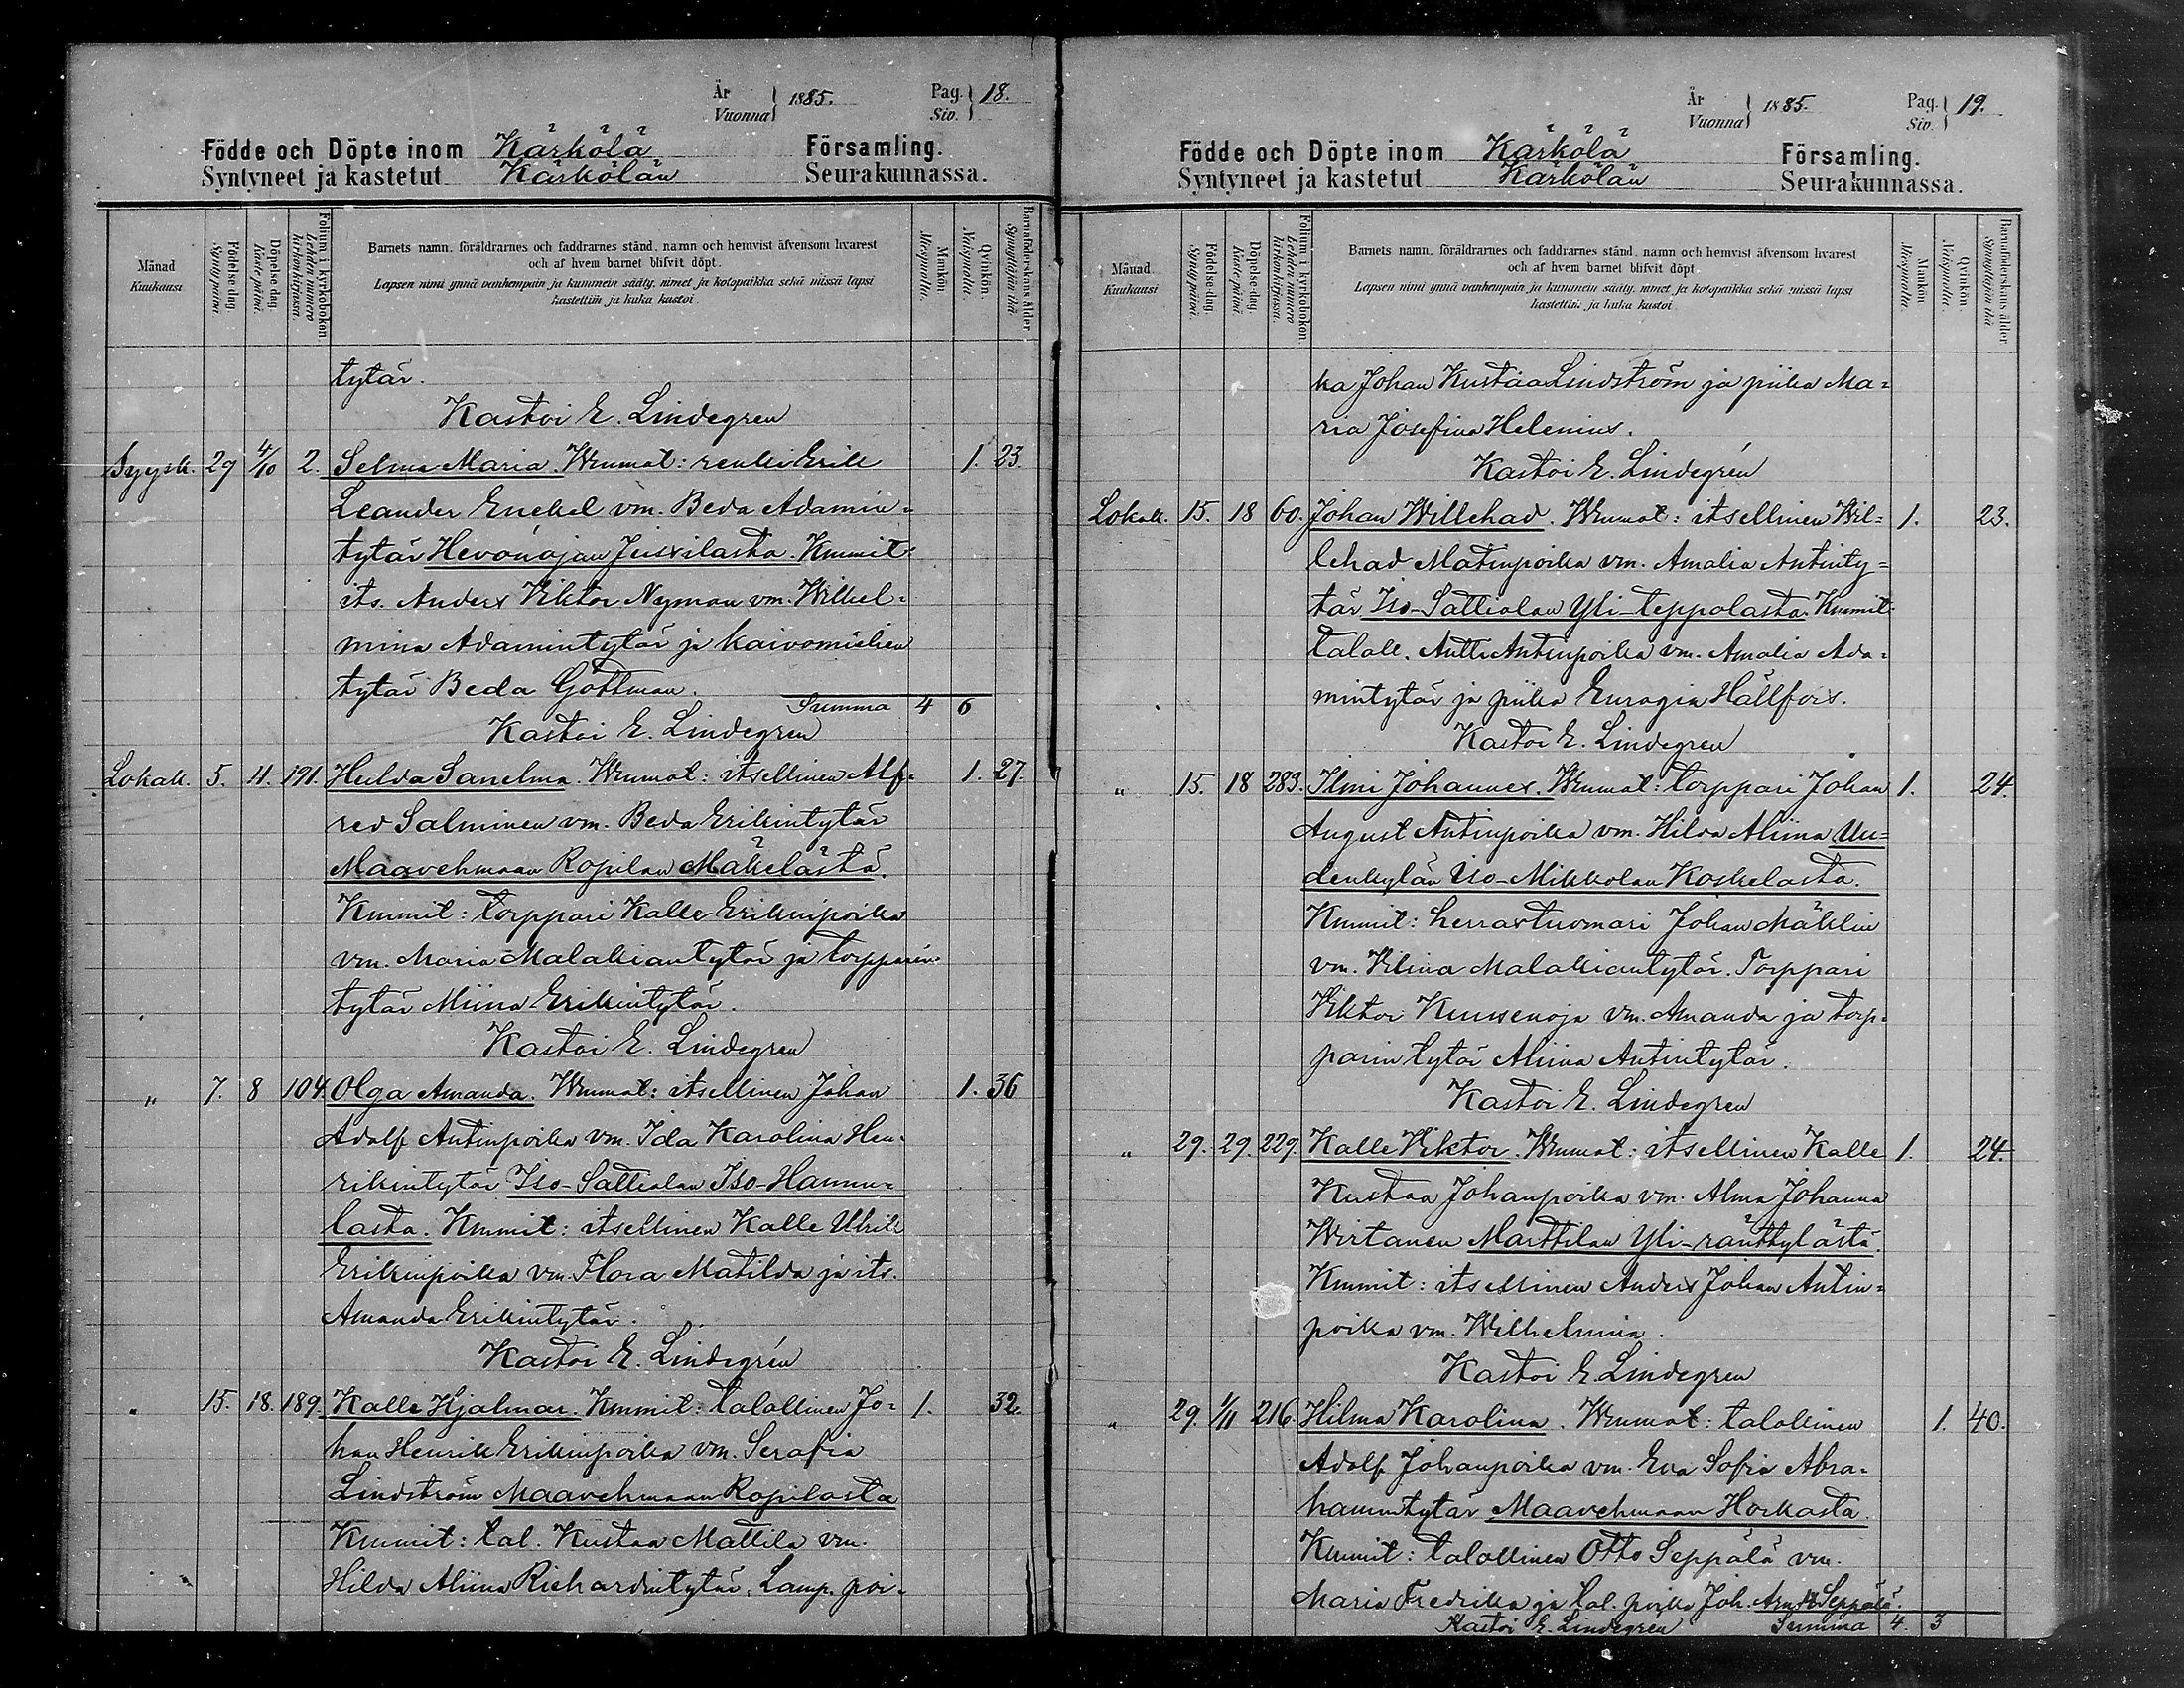 År
Vuonna } 1885. Pag.
Siv. } 18.
Födde och Döpte inom Kärkölä Församling.
Syntyneet ja kastetut Kärkölän Seurakunnassa.
Månad
Kuukausi
Födelse-dag.
Syntypäivä.
Döpelse-dag.
Kaste päivä
Folium i kyrkoboken
Lehden numero
kirkonkirjassa.
Barnets namn, föräldrarnes och faddrarnes stånd, namn och hemvist äfvensom hvarest
och af hvem barnet blifvit döpt.
Lapsen nimi ynnä vanhempain ja kummein sääty, nimet ja kotopaikka sekä missä lapsi
kastettiin ja kuka kastoi.
Mankön
Miespuolia.
Qvinkön.
Naispuolia.
Barnaföderskans ålder.
Synnyttäjän ikä
tytär.
Kastoi E. Lindegren
Syysk. 29 4/10 2. Selma Maria. Wmmat: renki Erik 1. 23
Leander Enckel vm. Beda Adamin-
tytär Hevonojan Jussilasta. Kmmit
its. Anders Viktor Nyman vm. Wilhel-
mina Adamintytär ja kaivomiehen
tytär Beda Gottman.
Summa 4 6
Kastoi E. Lindegren
Lokak. 5. 11. 191. Hulda Sanelma. Wmmat: itsellinen Alf- 1. 27
red Salminen vm. Beda Erikintytär
Maavehmaan Ropilan Mäkelästä.
Kmmit: torppari Kalle Erikinpoika
vm. Maria Malakiantytär ja torpparin
tytär Miina Erikintytär.
Kastoi E. Lindegren
„ 7. 8 104. Olga Amanda. Wmmat: itsellinen Johan 1. 36
Adolf Antinpoika vm. Ida Karolina Hen-
rikintytär Iso-Sattialan Iso-Hannu-
lasta. Kmmit: itsellinen Kalle Ulrik
Erikinpoika vm. Flora Matilda ja its.
Amanda Erikintytär.
Kastoi E. Lindegrén
„ 15. 18. 189. Kalle Hjalmar. Kmmit: talollinen Jo- 1. 32.
han Henrik Erikinpoika vm. Serafia
Lindström Maavehmaan Ropilasta
Kmmit: tal. Kustaa Mattila vm.
Hilda Aliina Richardintytär, Lamp. poi-
År
Vuonna } 1885. Pag.
Siv. } 19.
Födde och Döpte inom Kärkölä Församling.
Syntyneet ja kastetut Kärkölän Seurakunnassa.
Månad
Kuukausi
Födelse-dag.
Syntypäivä.
Döpelse-dag.
Kaste päivä
Folium i kyrkoboken
Lehden numero
kirkonkirjassa.
Barnets namn, föräldrarnes och faddrarnes stånd, namn och hemvist äfvensom hvarest
och af hvem barnet blifvit döpt.
Lapsen nimi ynnä vanhempain ja kummein sääty, nimet ja kotopaikka sekä missä lapsi
kastettiin ja kuka kastoi.
Mankön
Miespuolia.
Qvinkön.
Naispuolia.
Barnaföderskans ålder
Synnyttäjän ikä
ka Johan Kustaa Lindström ja piika Ma-
ria Josefina Helenius.
Kastoi E. Lindegrén
Lokak. 15. 18 60. Johan Willehad. Wmmat: itsellinen Wil- 1. 23.
lehad Matinpoika vm. Amalia Antinty-
tär Iso-Sattialan Yli-teppolasta. Kmmit
taloll. Antti Antinpoika vm. Amalia Ada-
mintytär ja piika Hällfors.
Kastoi E. Lindegren
„ 15. 18 283. Ilmi Johannes. Wmmat: torppari Johan 1. 24.
August Antinpoika vm. Hilda Aliina Uu-
denkylän Uso-Mikkolan Koskelasta.
Kmmit: herrastuomari Johan Mäklin
vm. Viina Malakiantytär. Torppari
Viktor Kuusenoja vm. Amanda ja torp-
parin tytär Aliina Antintytär.
Kastoi E. Lindegren
„ 29. 29. 229. Kalle Viktor. Wmmat: itsellinen Kalle 1. 24.
Kustaa Johanpoika vm. Alma Johanna
Wirtanen Marttilan Yli-ränttylästä.
Kmmit: itsellinen Anders Johan Antin-
poika vm. Wilhelmina.
Kastoi E. Lindegren
„ 29. 1/11 216. Hilma Karolina. Wmmat: talollinen 1. 40.
Adolf Johanpoika vm. Eva Sofia Abra-
hamintytär Maavehmaan Horkasta.
Kmmit: talollinen Otto Seppälä vm.
Maria Fredrika ja tal. poika Joh. Seppälä.
Kastoi E. Lindegren Summa 4. 3